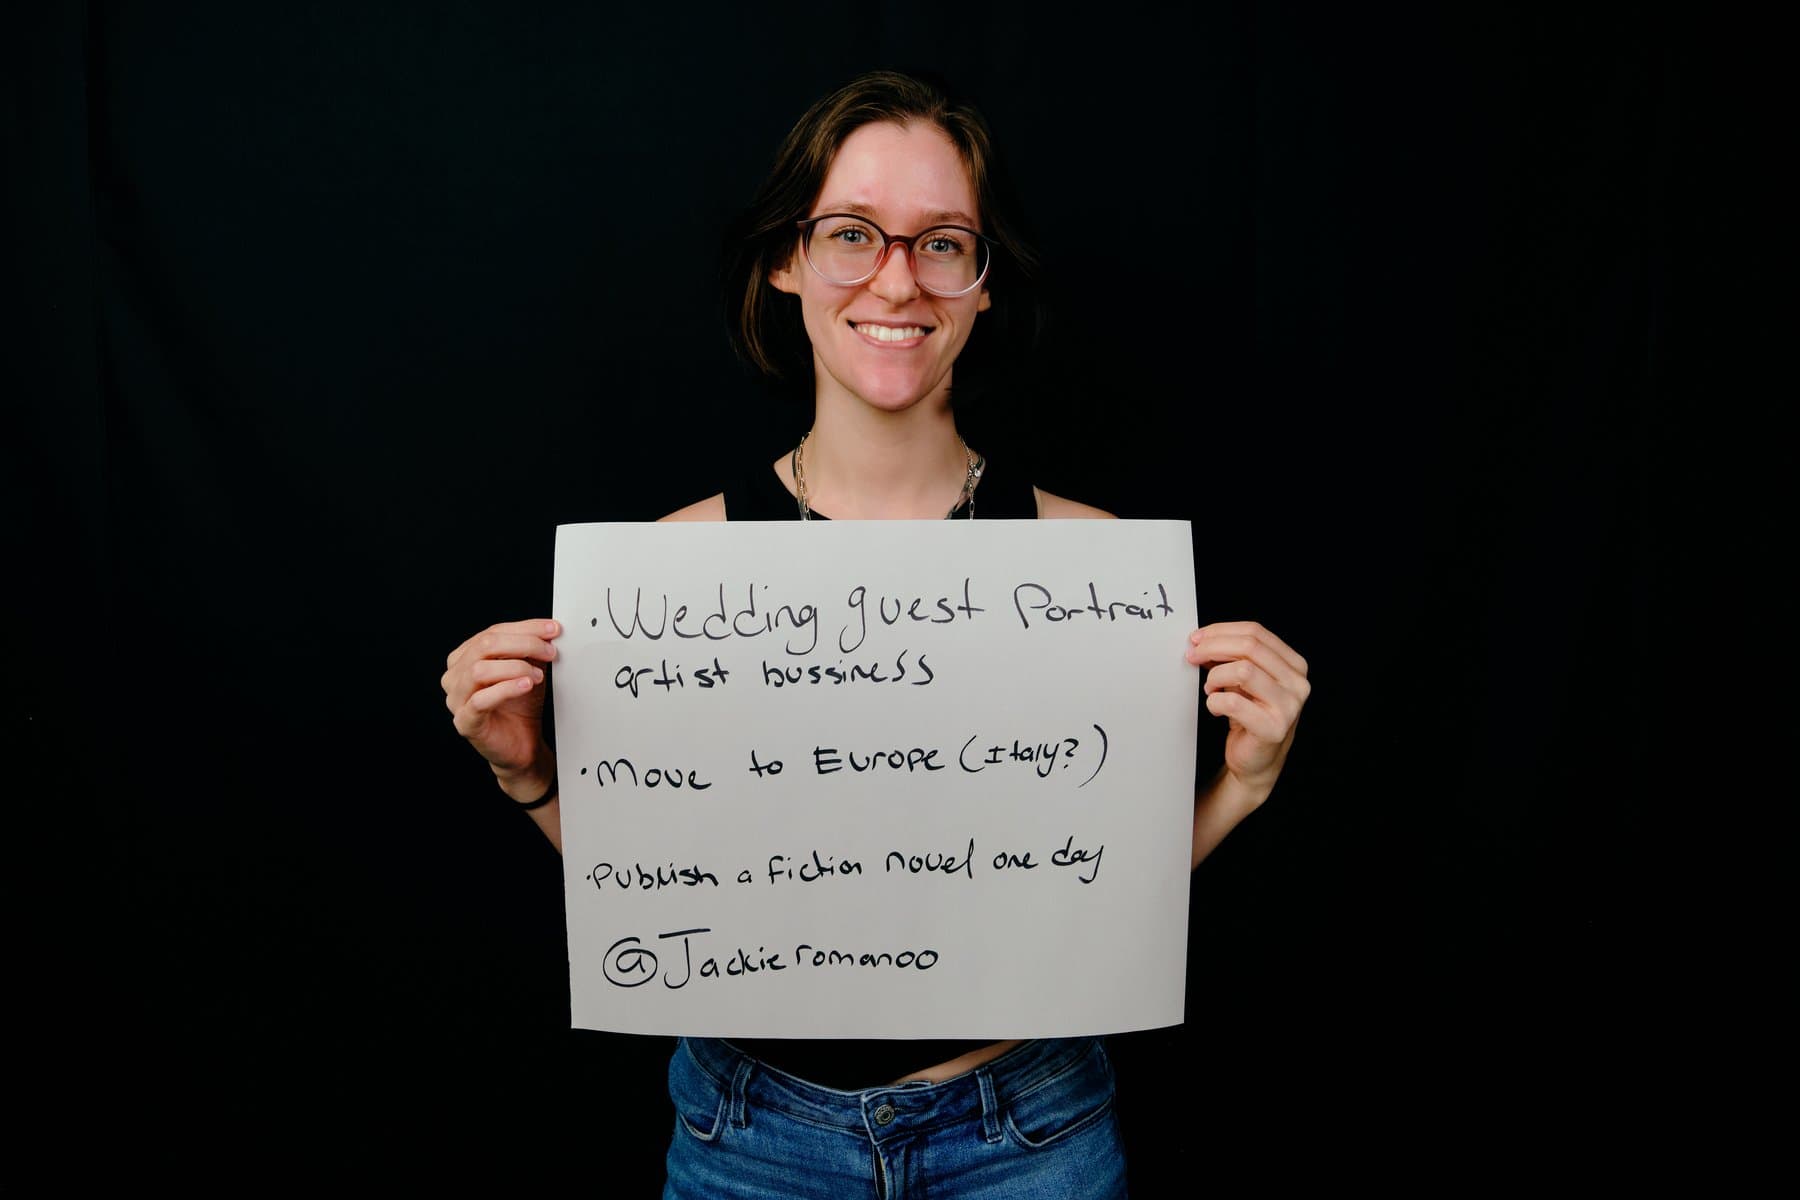 · Wedding guest Portrait
artist bussiness
· Move to Europe (Italy?)
· Publish a fiction novel one day
@Jackieromanoo